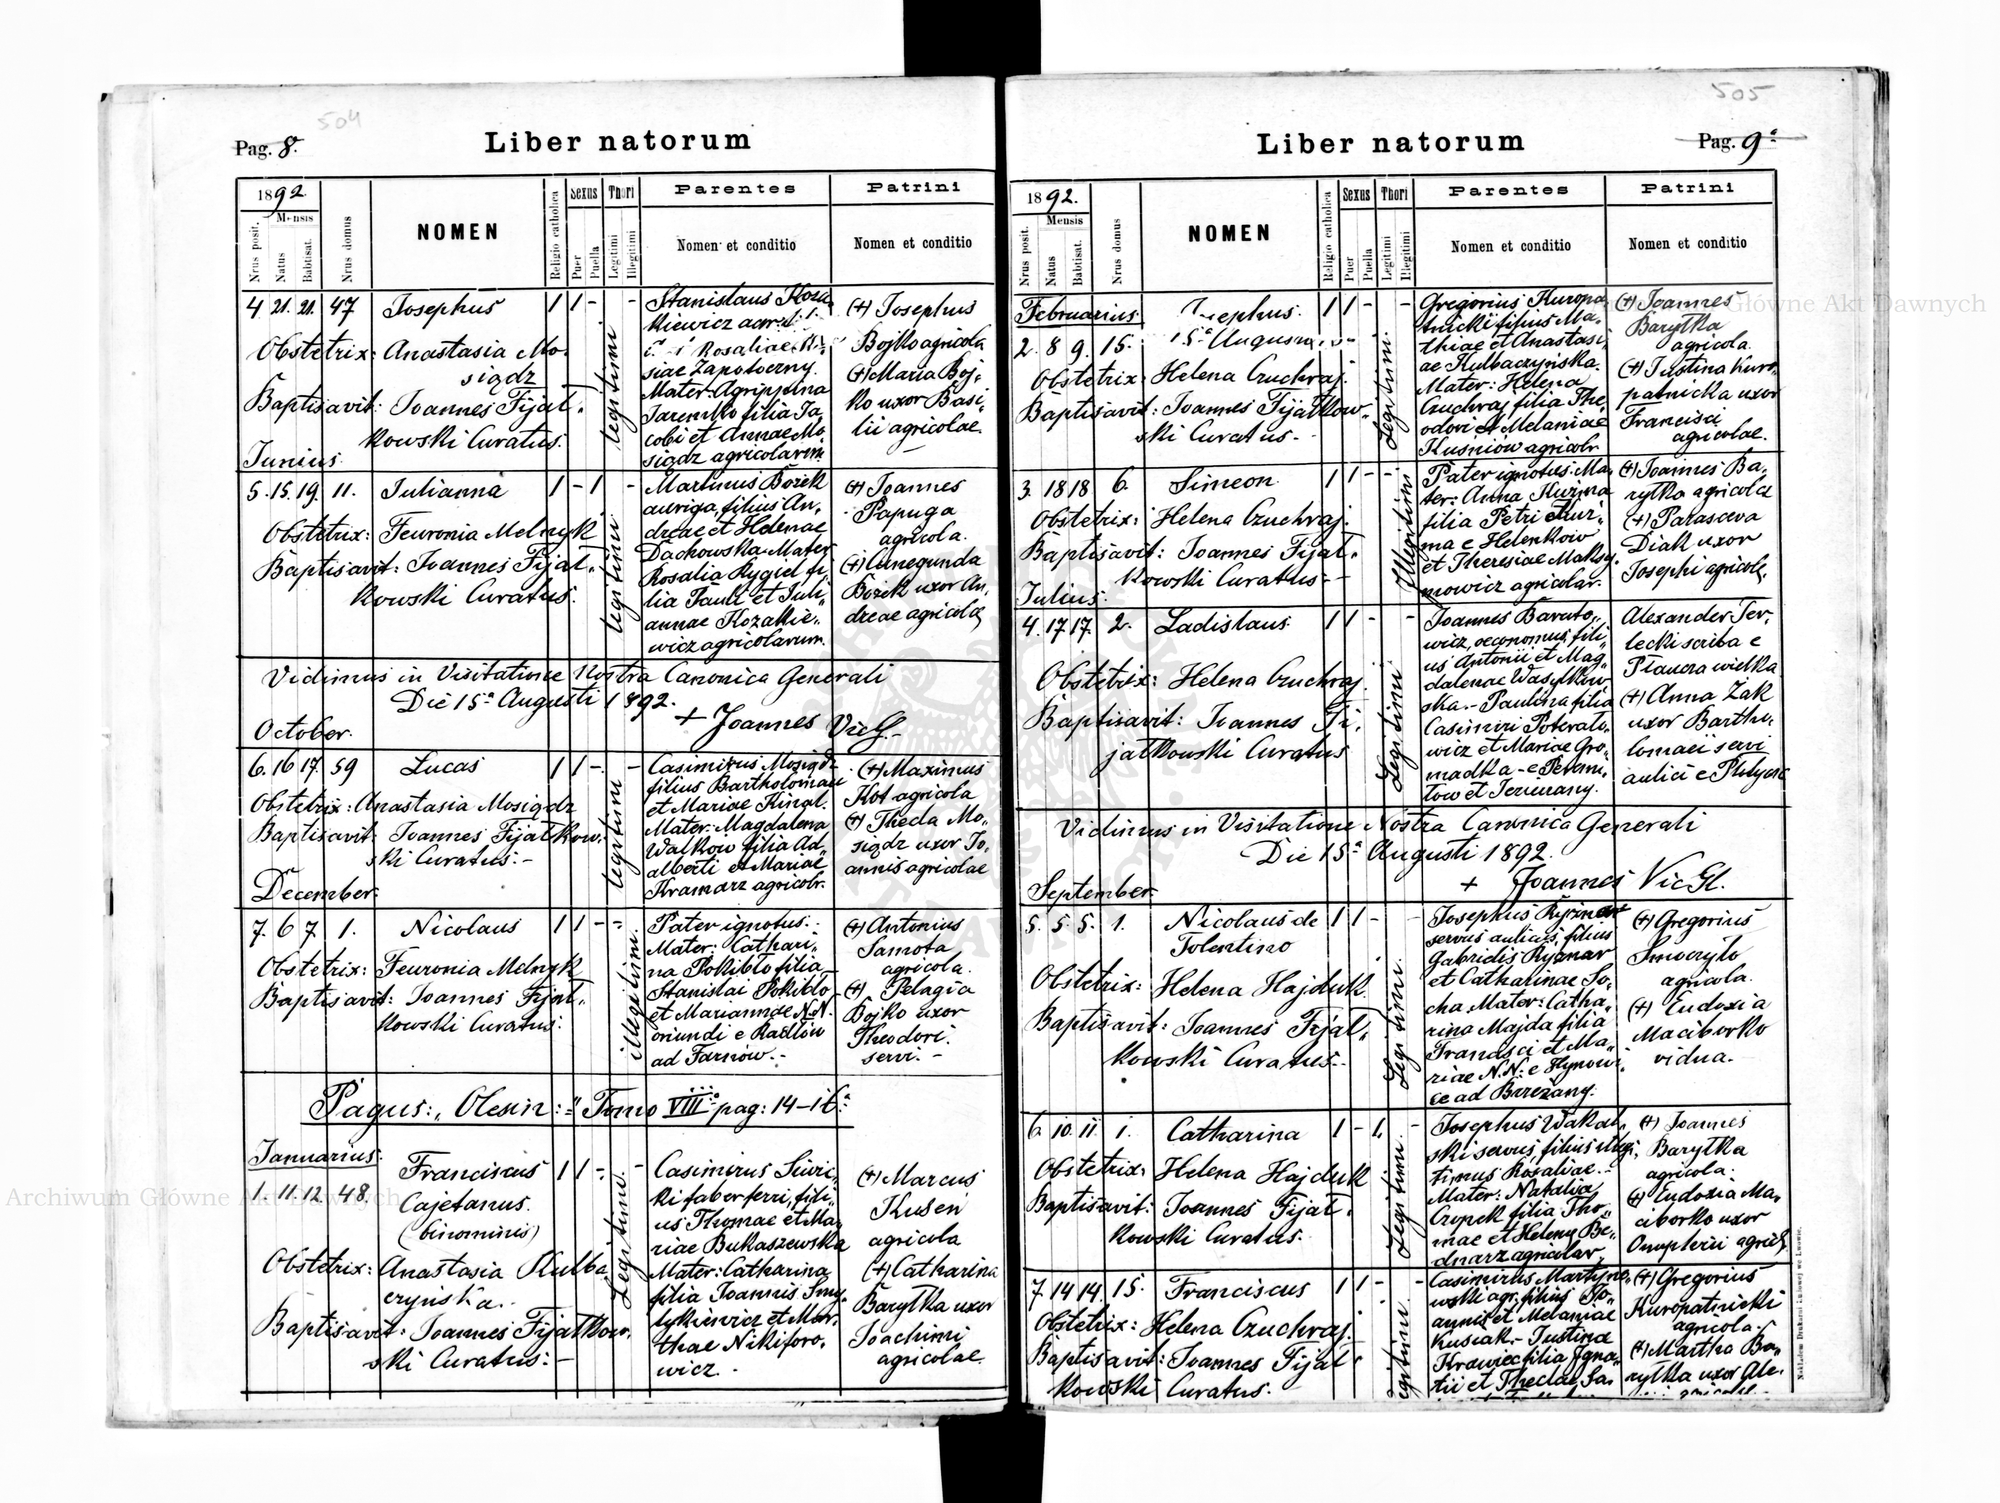 504
Pag. 8.
Liber natorum
1892.
Mensis
Nrus posit.
Natus
Babtisat.
Nrus domus
NOMEN
Religio catholica
Sexus
Puer
Puella
Thori
Legitimi
Illegitimi
Parentes
Nomen et conditio
Patrini
Nomen et conditio
4 21. 21. 47 Josephus 1 1 - -
Obstetrix: Anastasia Mo-
sigdz
Baptisavit: Joannes Fijał-
kowski Curatus.
legitimi
Stanislaus Koza-
kiewicz
Rosaliae
siae Zapotoczny.
Mater: Agrippina
Jaremko filia Ja
cobi et Annae Mo-
sigdz agricolarum.
(+) Josephus
Bojko agricola
(+) Maria Boj-
ko uxor Basi-
lii agricolae.
Junius.
5. 15. 19. 11. Julianna 1 - 1 -
Obstetrix: Feuronia Melnyk
Baptisavit: Joannes Fijał-
kowski Curatus.
legitimi
Martinus Bożek
auriga, filius An-
dreae et Helenae
Dackowska Mater
Rosalia Rygiel fi
lia Pauli et Juli-
annae Kozakie-
wicz agricolarum.
(+) Joannes
Papuga
agricola.
(+) Cunegunda
Bożek uxor An-
dreae agricolae
Vidimus in Visitatione Nostra Canonica Generali
Die 15a Augusti 1892.
+ Joannes Vic G.
October.
6. 16 17. 59 Lucas 1 1 - -
Obstetrix: Anastasia Mosigdz
Baptisavit: Joannes Fijałkow-
ski Curatus:-
legitimi
Casimirus Mosigdz
filius Bartholomaei
et Mariae Kingl.
Mater: Magdalena
Walkow filia Ad-
alberti et Mariae
Kramarz agricolr.
(+) Maximus
Kot agricola
(+) Thecla Mo-
sigdz uxor Jo-
annis agricolae
December.
7. 6 7 1. Nicolaus 1 1 - -
Obstetrix: Feuronia Melnyk
Baptisavit: Joannes Fijał-
kowski Curatus:
illegitim.
Pater ignotus.-
Mater: Cathari-
na Pokibło filia
Stanislai Pokibło
et Mariannae N.N.
oriundi e Radłow
ad Tarnów.-
(+) Antonius
Samota
agricola.
(+) Pelagia
Bojko uxor
Theodori
servi.-
Pagus: „Olesin:" Tomo VIII° pag: 14-16a
Januarius.
1. 11. 12. 48. Franciscus 1 1 - -
Cajetanus.
(binominis)
Obstetrix: Anastasia Kulba
czyńska.
Baptisavit: Joannes Fijałkow-
ski Curatus:-
Legitime.
Casimirus
ki faber ferri, fili-
us Thomae et Ma-
riae Bukaszewska
Mater: Catharina
filia Joannis Smy-
tykiewicz et Mar-
thae Nikiforo-
wicz.
(+) Marcus
Kuseń
agricola
(+) Catharina
Barytka uxor
Joachimi
agricolae.
505
Pag. 9a
Liber natorum
1892.
Mensis
Nrus posit.
Natus
Babtisat.
Nrus domus
NOMEN
Religio catholica
Sexus
Puer
Puella
Thori
Legitimi
Illegitimi
Parentes
Nomen et conditio
Patrini
Nomen et conditio
Februarius.
Josephus. 1 1 - -
2. 8 9. 15.
Obstetrix: Helena Czuchraj.
Baptisavit: Joannes Fijałkow-
ski Curatus.-
Legitimi
Gregorius Kuropa-
tnicki filius Ma-
thiae et Anastasi
ae Kulbaczyńska.
Mater: Helena
Czuchraj filia The-
odori et Melaniae
Kuśniów agricolr.
(+) Joannes
Barytka
agricola.
(+) Justina Kuro-
patnicka uxor
Francisci
agricolae.
3. 18 18 6. Simeon 1 1 - -
Obstetrix: Helena Czuchraj.
Baptisavit: Joannes Fijał-
kowski Curatus.-
Illegitimi
Pater ignotus. Ma-
ter: Anna Kuźma
filia Petri Kuź-
ma e Helenkow
et Theresiae Maksy-
mowicz agricolar.
(+) Joannes Ba-
rytka agricola
(+) Parasceva
Diak uxor
Josephi agricolae.
Julius.
4. 17 17. 2. Ladislaus 1 1 - -
Obstetrix: Helena Czuchraj.
Baptisavit: Joannes Fi-
jałkowski Curatus
Legitimi
Joannes Baruto-
wicz, oeconomus, fili-
us Antonii et Mag-
dalenae Wasylkow-
ska.- Paulina filia
Casimiri Poterało-
wicz et Mariae Gro-
madka - e Peram-
tow et Jezierany.
Alexander Ter-
lecki scriba e
Płaucza wielka
(+) Anna Żak
uxor Bartho-
lomaei servi
aulici e
Vidimus in Visitatione Nostra Canonica Generali
Die 15a Augusti 1892.
+ Joannes Vic Gl.
September.
5. 5. 5. 1. Nicolaus de 1 1 - -
Tolentino
Obstetrix: Helena Hajduk.
Baptisavit: Joannes Fijał-
kowski Curatus.-
Legitim.
Josephus Ryznar
servus aulicus, filius
Gabrielis Ryznar
et Catharinae So-
cha Mater: Catha-
rina Majda filia
Francisci et Ma-
riae N.N. e Hynowi-
ce ad Brzeżany.
(+) Gregorius
Smoczyło
agricola.
(+) Eudoxia
Maciborko
vidua.-
6. 10. 11. 1. Catharina 1 - 1. -
Obstetrix: Helena Hajduk
Baptisavit: Joannes Fijał-
kowski Curatus.
Legitim.
Josephus Wakal-
ski servus, filius illegi-
timus Rosaliae.-
Mater: Natalia
Czopek filia Tho-
mae et Helenae Be-
dnarz agricolar.
(+) Joannes
Barytka
agricola.
(+) Eudoxia Ma-
ciborko uxor
Onupherii agricolae
7. 14 14. 15. Franciscus 1 1 - -
Obstetrix: Helena Czuchraj.
Baptisavit: Joannes Fijał-
kowski Curatus.
Legitim.
Casimirus Martyno-
wski agr. filius Jo-
annis et Melaniae
Kusiak.- Justina
Krawiec filia Igna-
tii et Theclae Sa-
(+) Gregorius
Kuropatnicki
agricola.
(+) Martha Ba-
rytka uxor Ale-
Nakładem Drukarni Ludowej we Lwowie.
Archiwum Główne Akt Dawnych
Główne Akt Dawnych